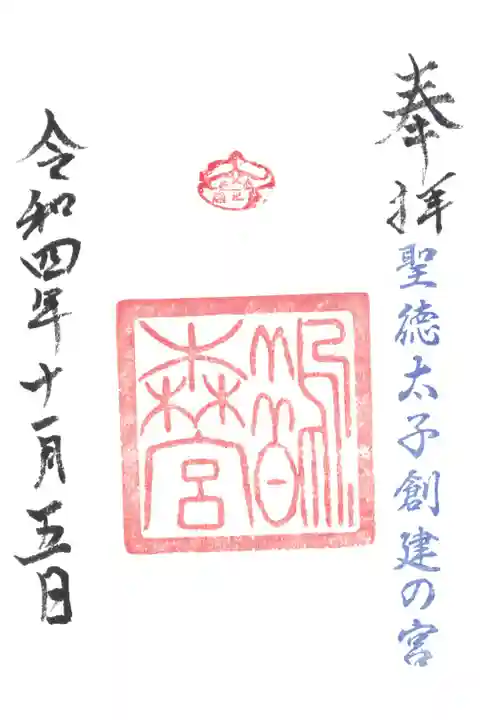 奉拝
聖徳太子創建の宮
鵲森宮
令和四年十一月五日